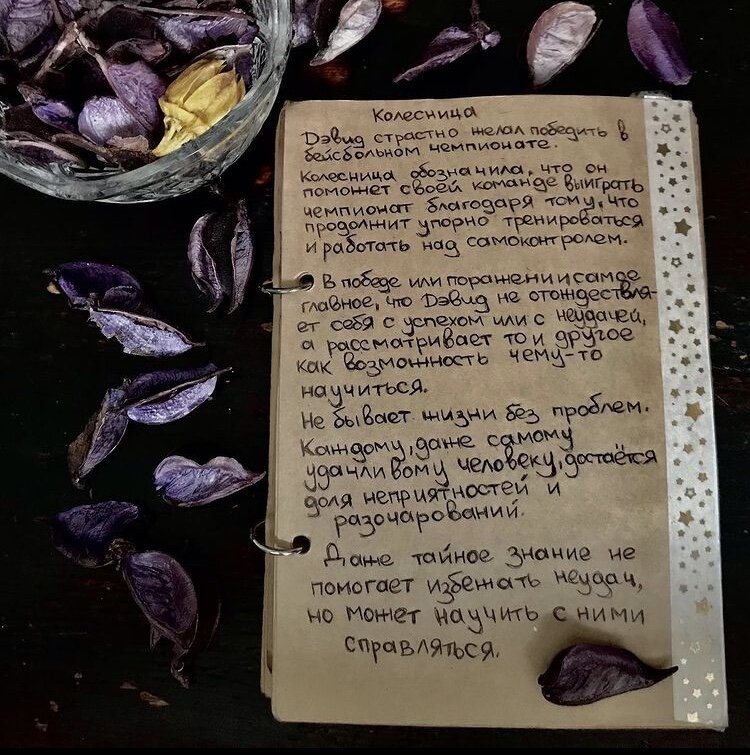 Колесница
Дэвид страстно желал победить в
бейсбольном чемпионате.
Колесница обозначила, что он
поможет своей команде выиграть
чемпионат благодаря тому, что
продолжит упорно тренироваться
и работать над самоконтролем.
В победе или поражении и самое
главное, что Дэвид не отождествля-
ет себя с успехом или с неудачей,
а рассматривает то и другое
как возможность чему-то
научиться.
Не бывает жизни без проблем.
Каждому, даже самому
удачливому человеку, достаётся
доля неприятностей и
разочарований.
Даже тайное знание не
помогает избежать неудач,
но может научить с ними
справляться.